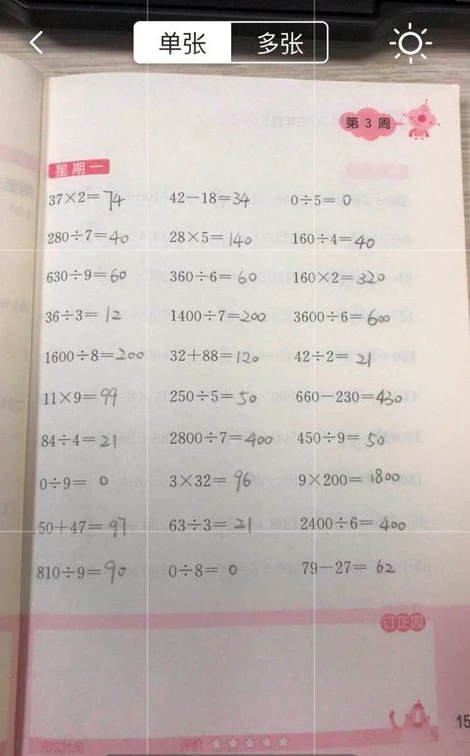 单张 多张
第 3 周
星期一
37×2=74 42-18=34 0÷5=0
280÷7=40 28×5=140 160÷4=40
630÷9=60 360÷6=60 160×2=320
36÷3=12 1400÷7=200 3600÷6=600
1600÷8=200 32+88=120 42÷2=21
11×9=99 250÷5=50 660-230=430
84÷4=21 2800÷7=400 450÷9=50
0÷9=0 3×32=96 9×200=1800
50+47=97 63÷3=21 2400÷6=400
810÷9=90 0÷8=0 79-27=62
订正吧
评价
15